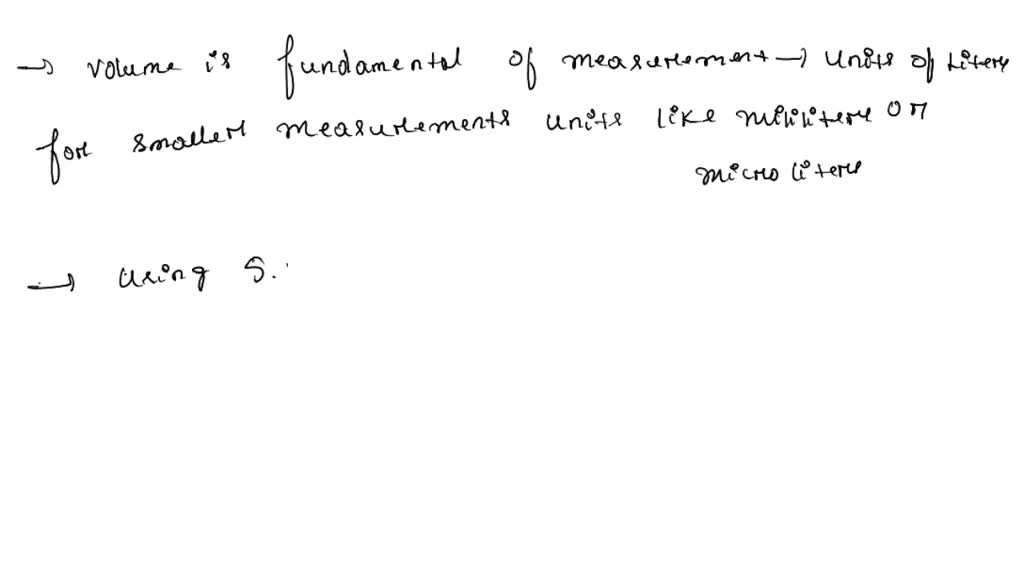 → volume is fundamental of measurement → units of liters
for smaller measurements units like mililiters or
micro liters
→ using S.